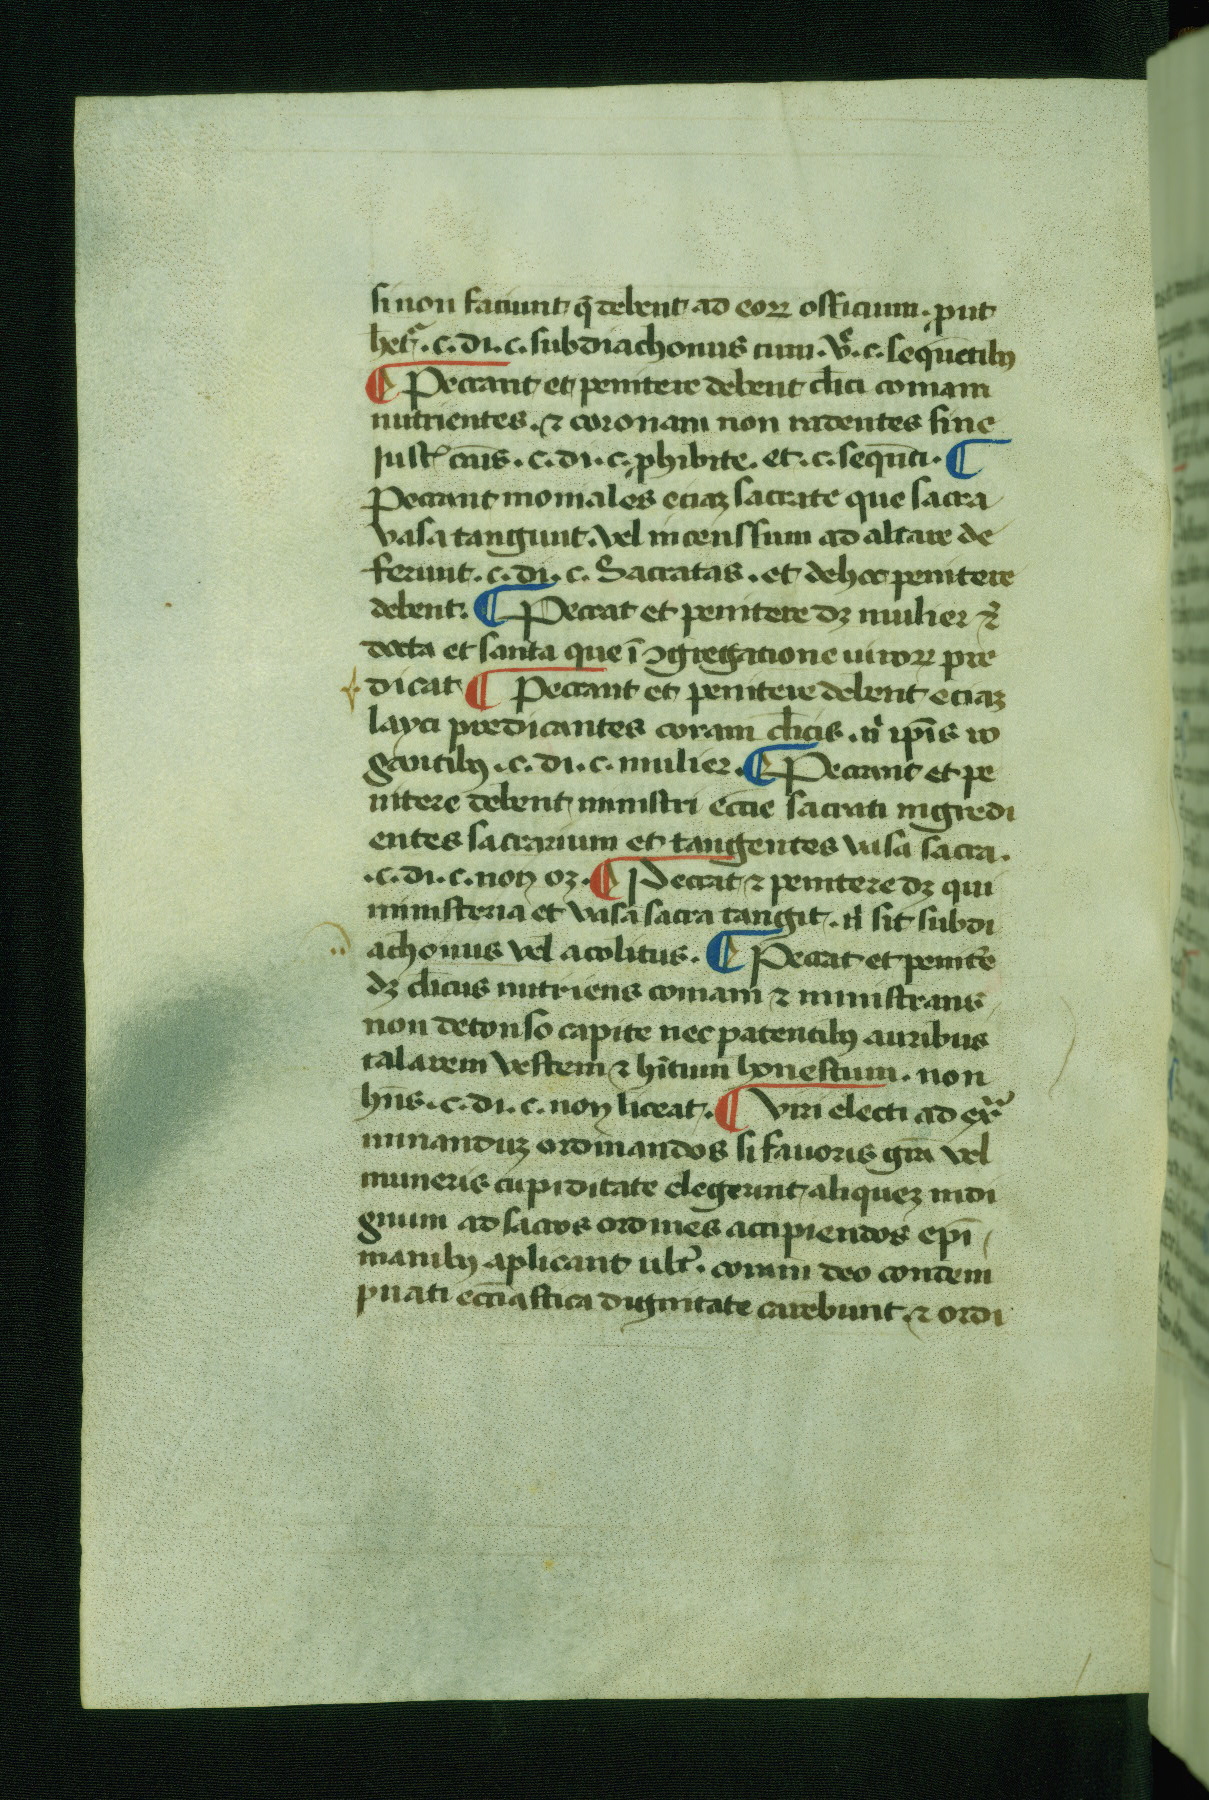 si non faciunt q̄ debent ad eoꝝ officium. ꝓut
.c. di. c. subdiachonus cum. c. sequētibꝰ
¶ Peccant et penitere debent cl̄ici comam
nutrientes. ⁊ coronam non radentes sine
cāis. c. di. c. ꝓhibite. et. c. sequēti. ¶
Peccant moniales eciaꝫ sacrate que sacra
vasa tangunt. vel incenssum ad altare de
ferunt. c. di. c. Sacratas. et de hoc penitere
debent. ¶ Peccat et penitere dꝫ mulier
docta et santa que ī ꝯgregatione viroꝝ pre
dicat ¶ Peccant et penitere debent eciaꝫ
layci predicantes coram cl̄icis. nͥ ip̄is ro
gantibꝰ. c. di. c. mulier. ¶ Peccant et pe
nitere debent ministri ecc̄ie sacrati ingredi
entes sacrarium et tangentes vasa sacra.
.c. di. c. non oꝫ. ¶ Peccat ⁊ penitere dꝫ qui
ministeria et vasa sacra tangit. nͥ sit subdi
achonus vel acolitus. ¶ Peccat et penitēe
dꝫ cl̄icus nutriens comam ⁊ ministrans
non detonso capite nec patentibꝰ auribus
talarem vestem ⁊ hītum honestum. non
hn̄s. c. di. c. non liceat. ¶ Viri electi ad exᵃ
minanduꝫ ordinandos si fauoris gr̄a vel
muneris cupiditate elegerunt aliqueꝫ indi
gnum ad sacros ordines accipiendos ep̄i
manibꝰ aplicant ult̉. coram deo condem
pnati ecc̄iastica dignitate carebunt. ⁊ ordi